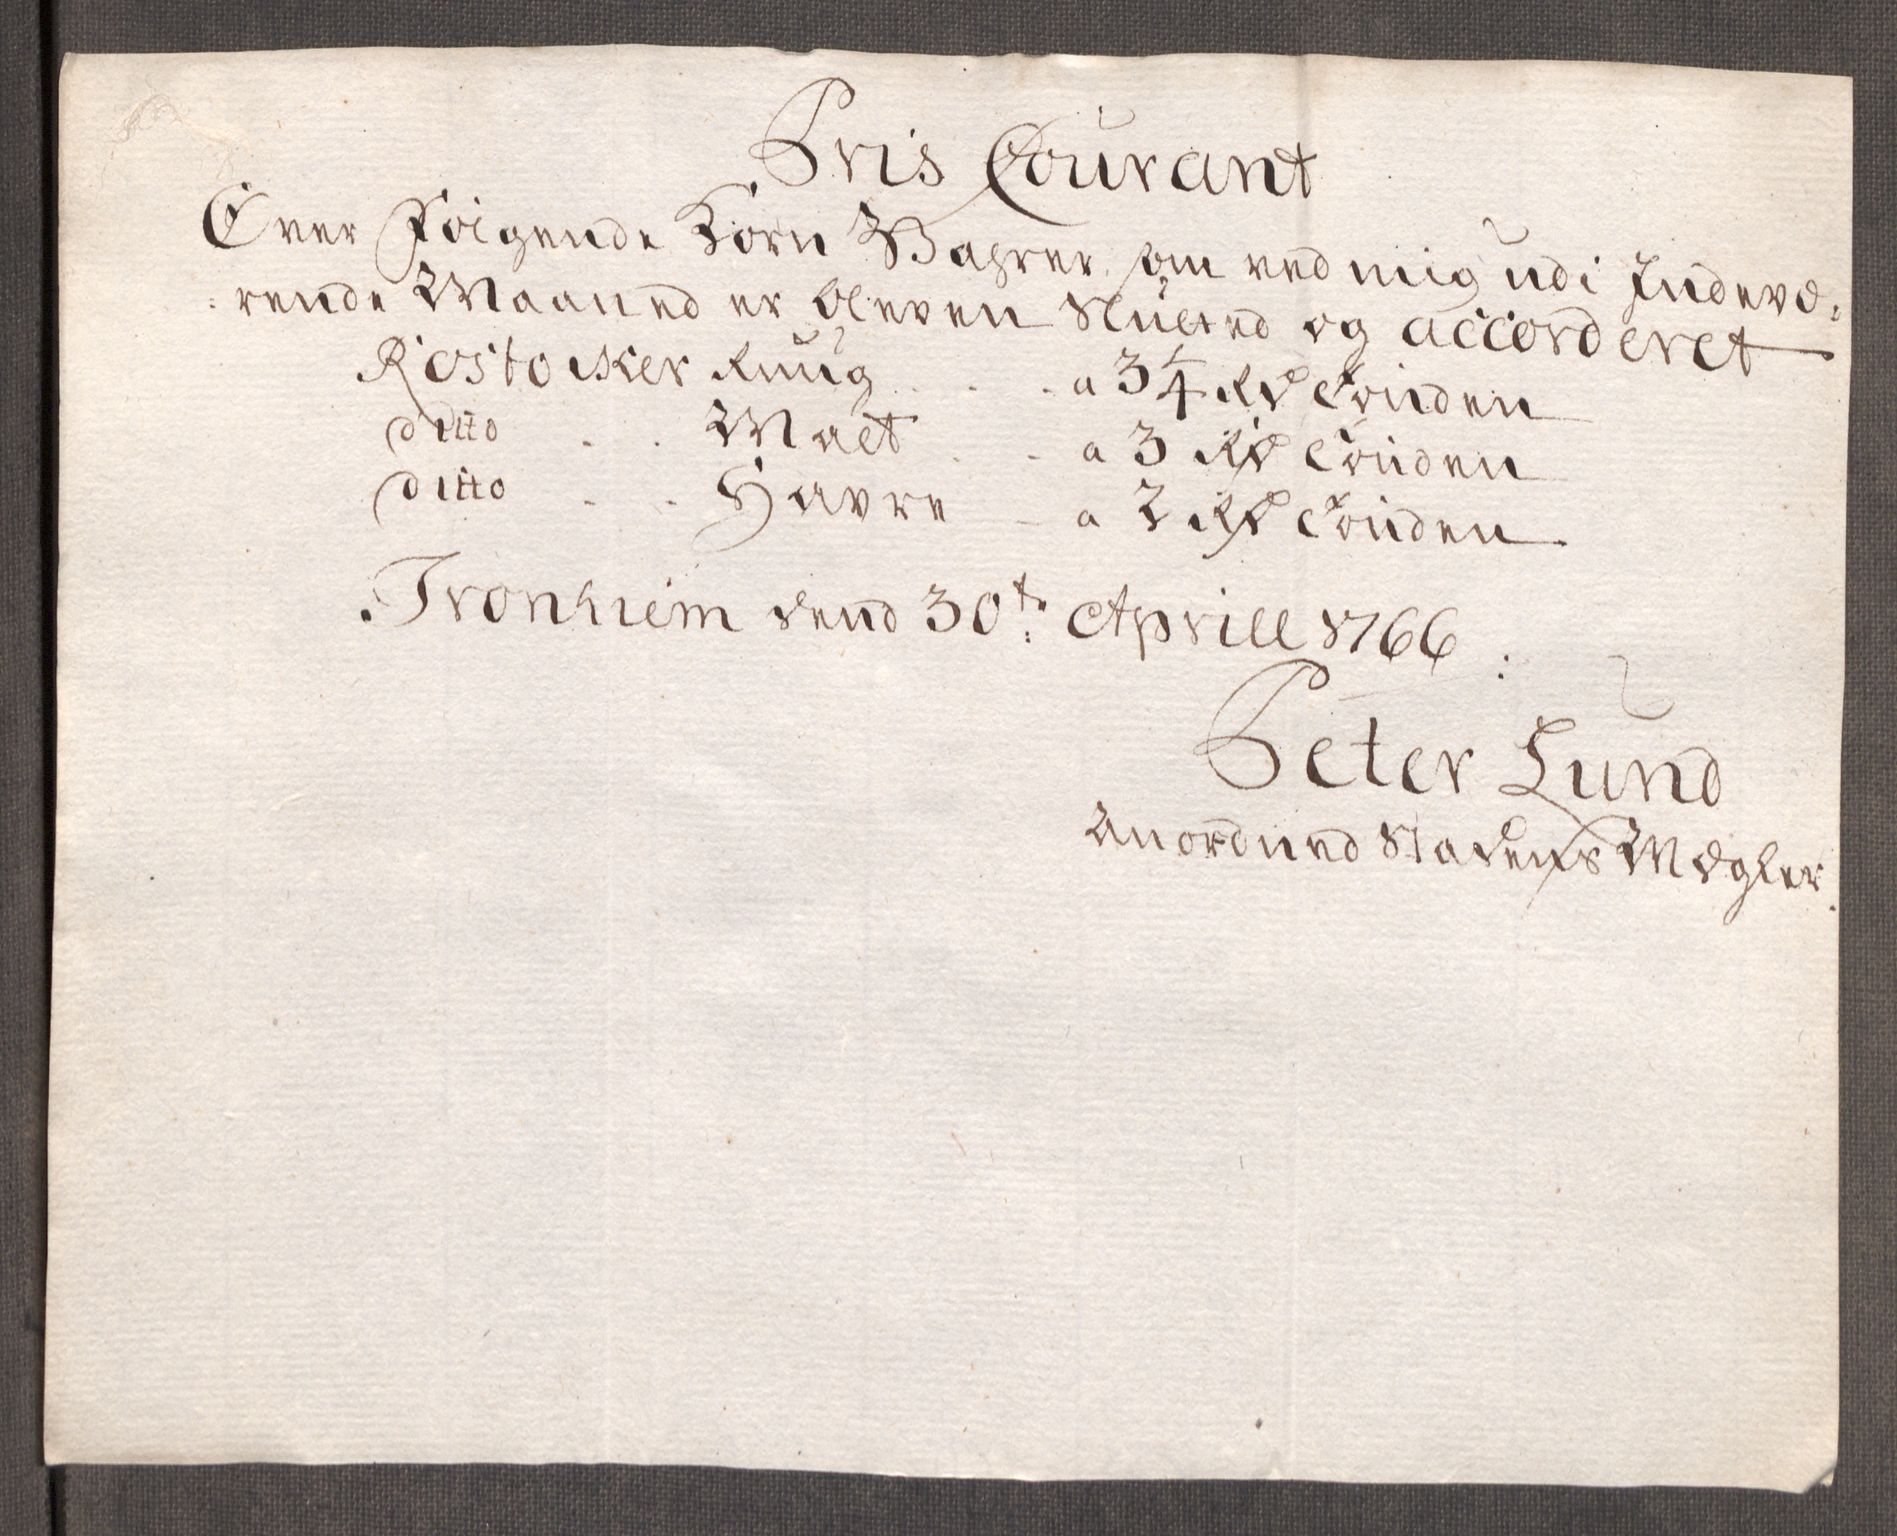 Pris Courant
Over Følgende Korn Wahrer som ved mig udi Indevæ-
rende Maaned er bleven Slutted og accorderet
Rostocker Ruug . . . a 3 1/4 Rd Tønden
ditto . . Malt . . a 3 Rd Tønden
ditto . . Havre - a 2 Rd Tønden
Tronhiem dend 30te Aprill 1766
Peter Lund
Anordned Stadens Mægler